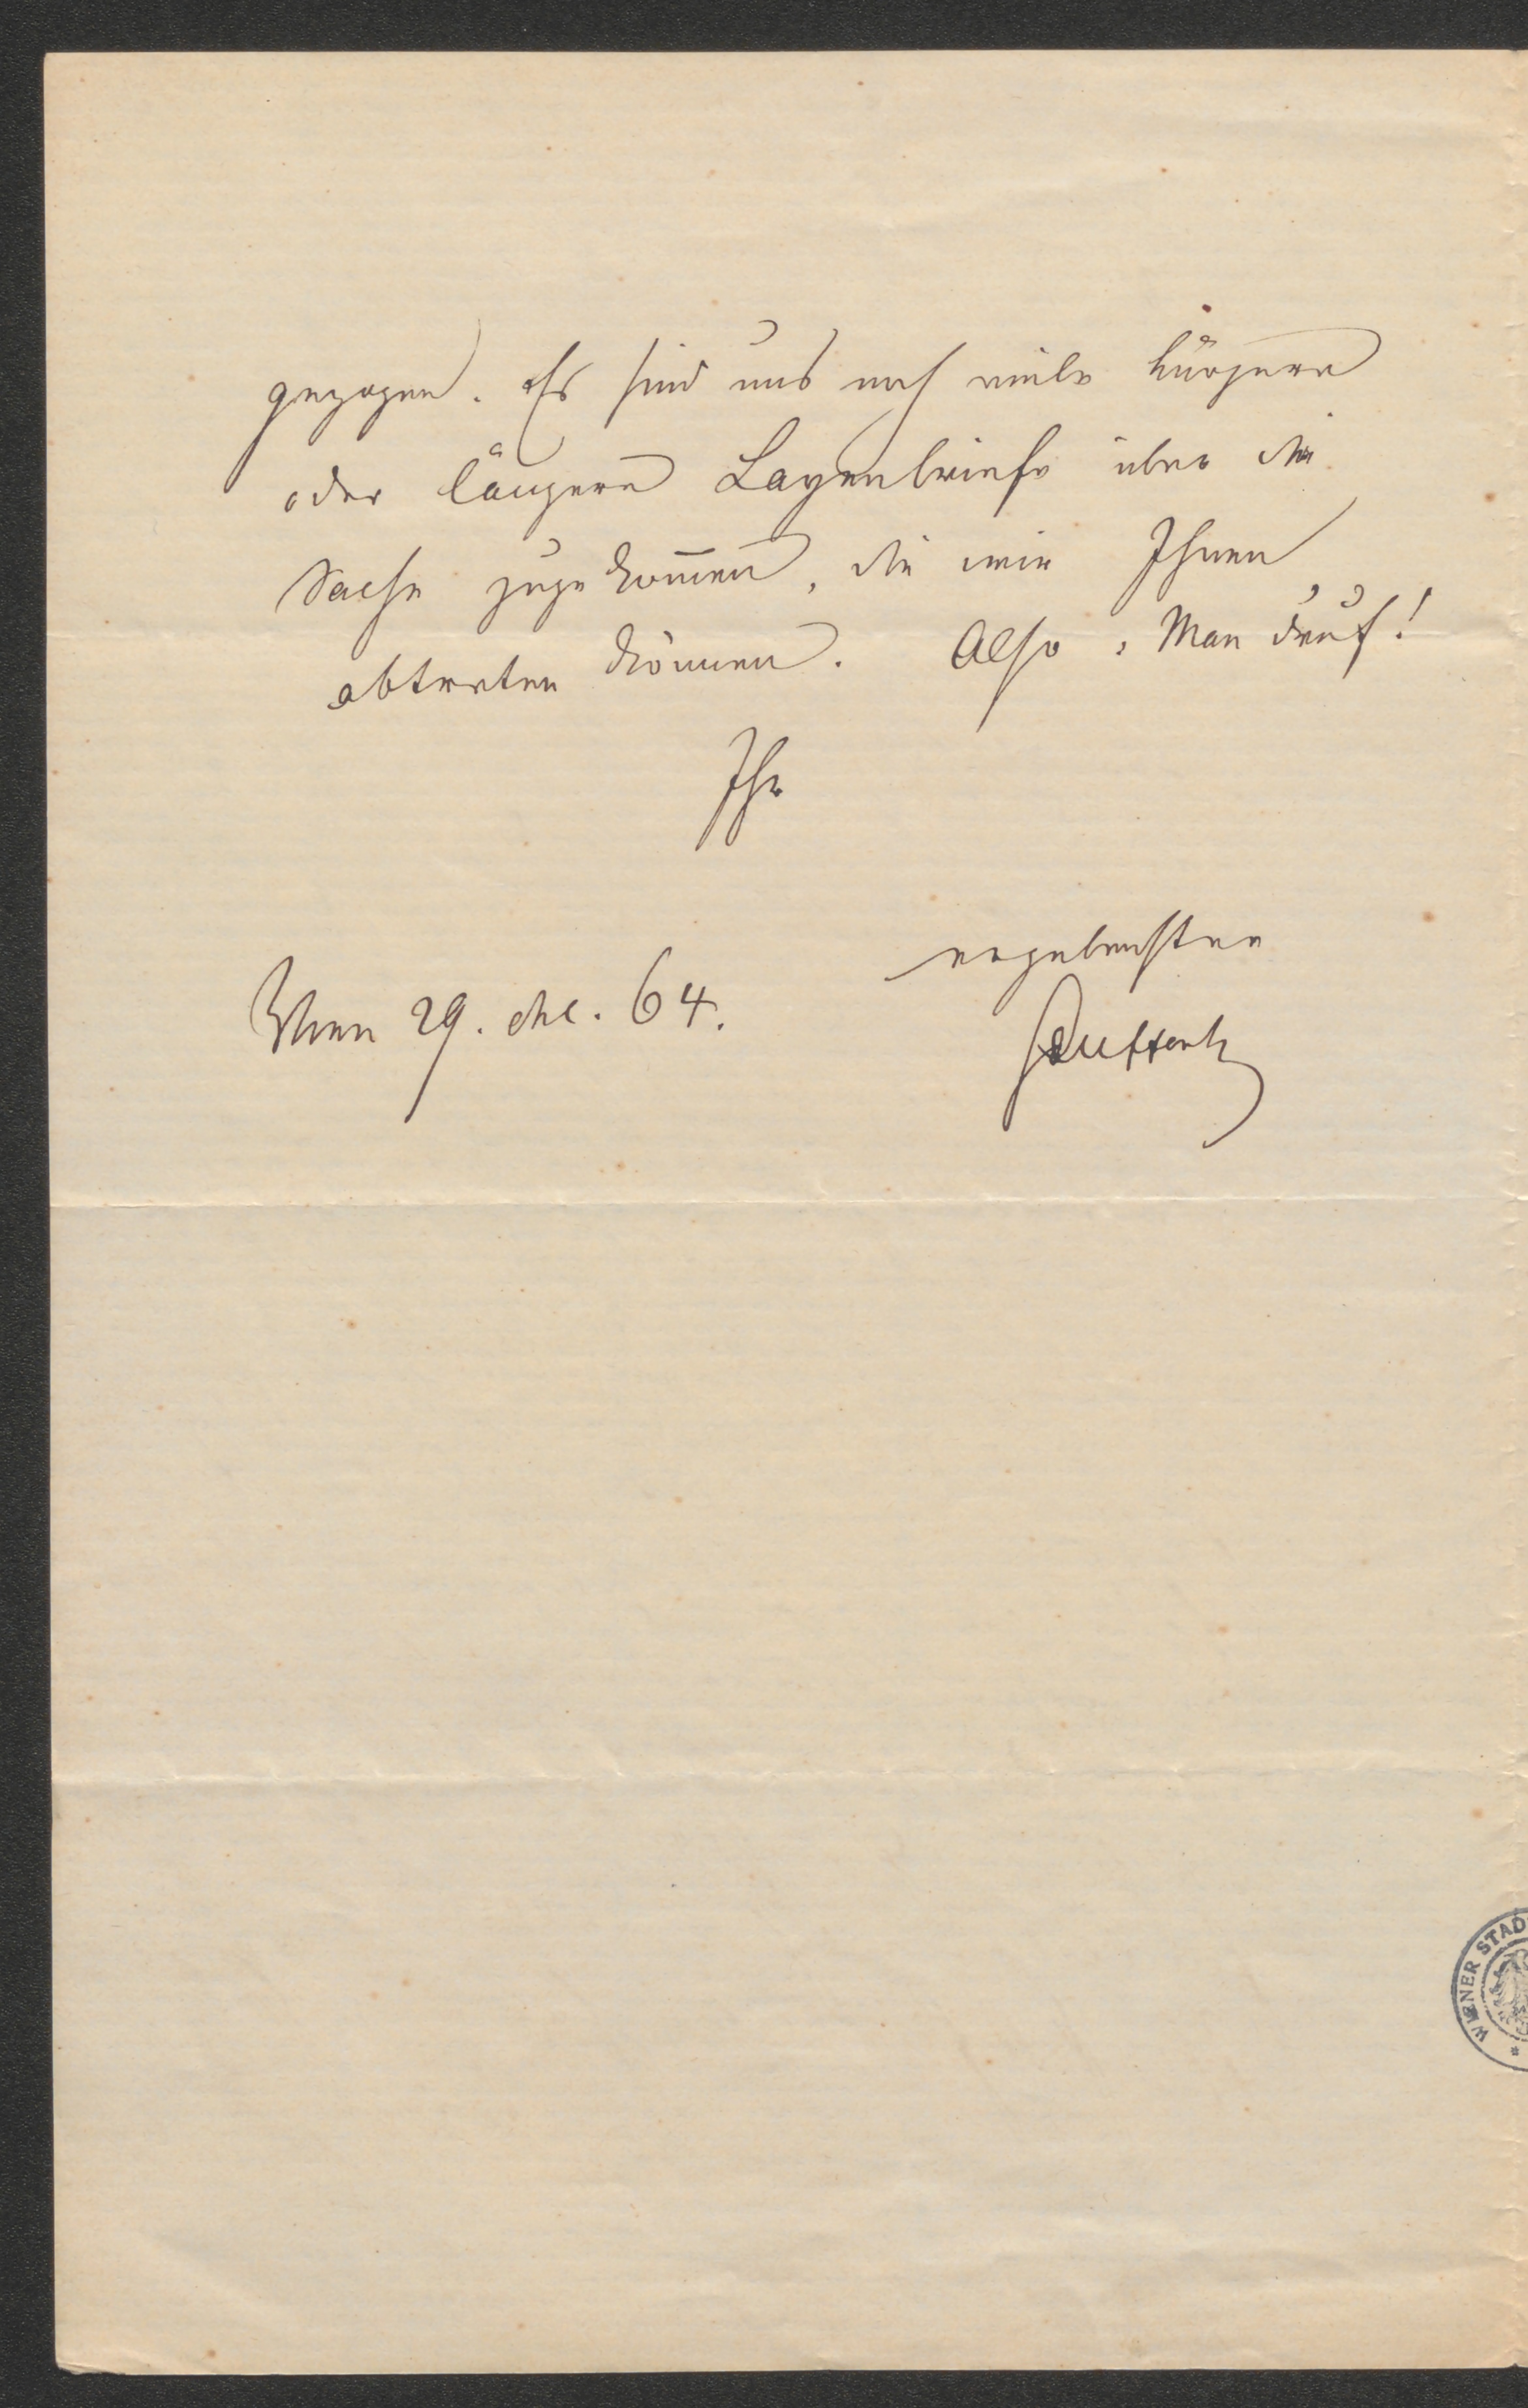 gezogen. Es sind uns noch viele kürzere
oder längere Layenbriefe über die
Sache zugekom̅en, die wir Ihnen
abtreten können. Also: Man drauf!
Ihr
ergebenster
Wien 29. Dec. 64.
WIENER STAD